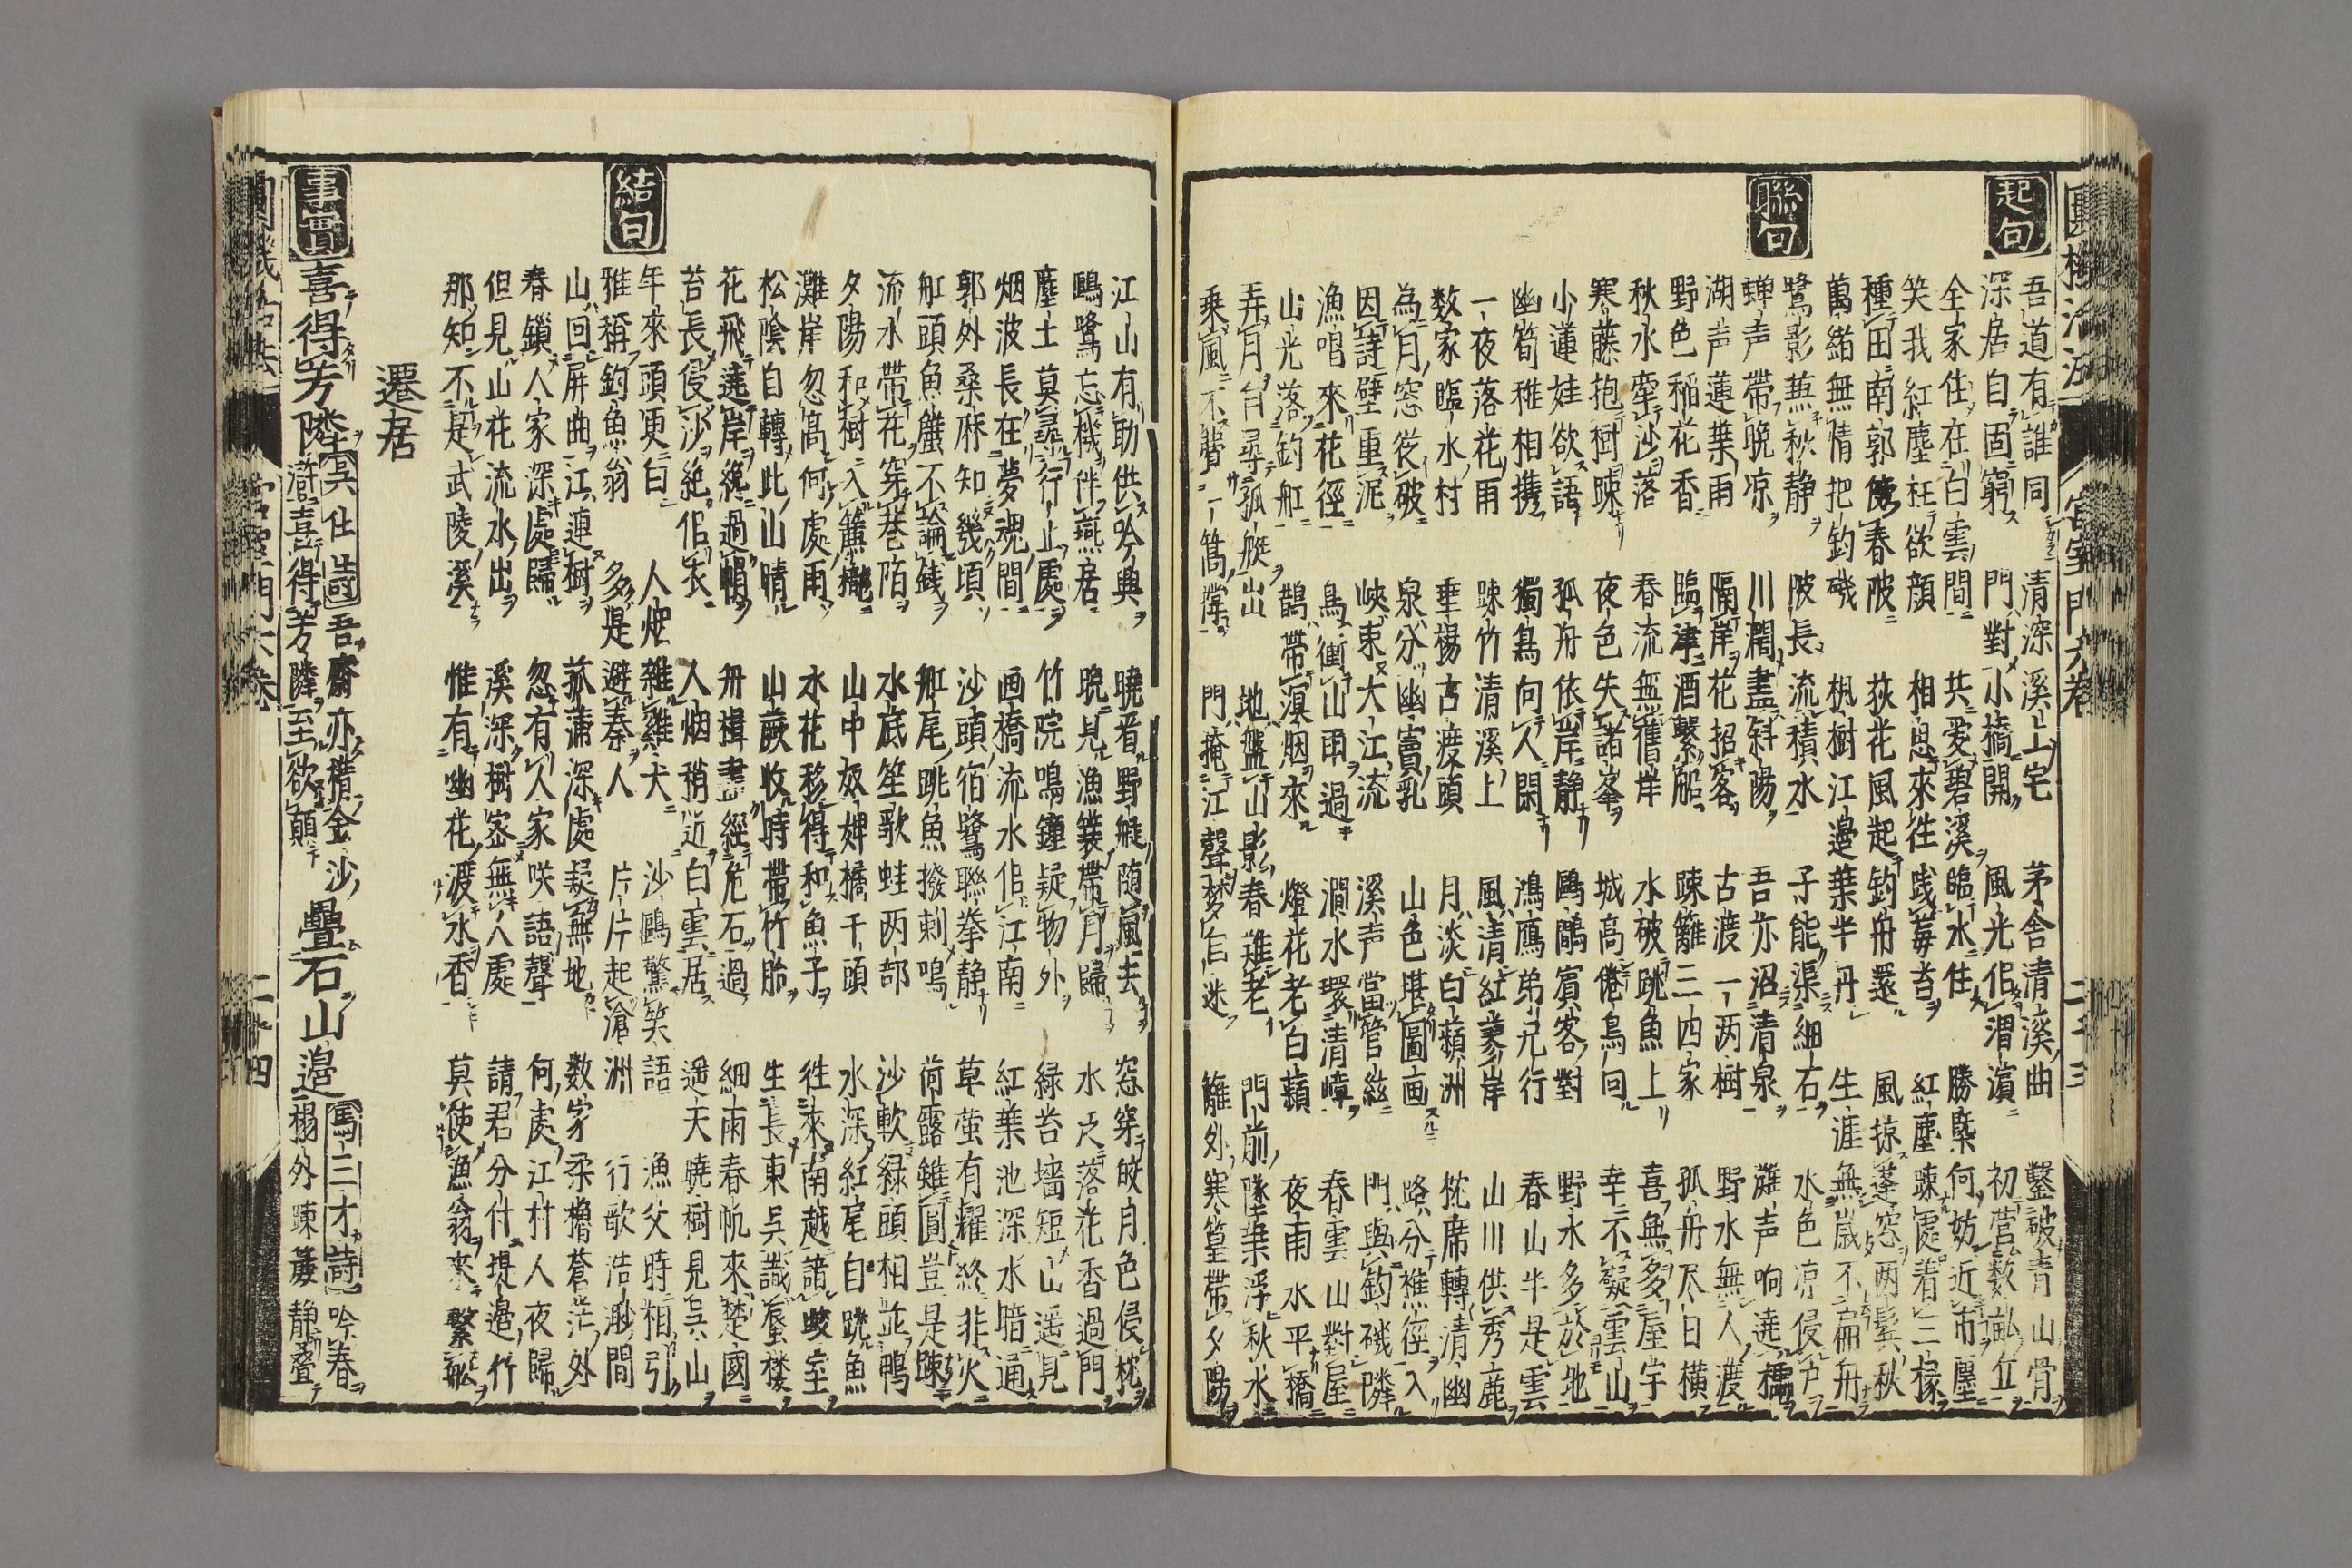 起句
吾道有誰同　清深溪山宅　茅舎清溪曲　鑿破青山骨
深居自固窮　門對小橋開　風光佀渭濵　初營数畝丘
全家住在白雲間　共愛碧溪臨水住　勝槩何妨近市廛
笑我紅塵枉欲顔　相思來徃踐莓苔　紅塵踈處着三椽
種田南郭傍春陂　荻花風起釣舟還　風掠蓬窓两鬂秋
萬緒無情把釣磯　楓樹江邉葉半丹　生涯無嵗不扁舟
聯句
鷺影蒹秋静　陂長流積水　子能渠細石　水色凉侵户
蝉声帶晩凉　川濶盡斜陽　吾亦沼清泉　灘声响遶橋
湖声蓮葉雨　隔岸花招客　古渡一两樹　野水無人渡
野色稲花香　臨津酒繋船　踈籬三四家　孤舟尽日横
秋水牽沙落　春流無舊岸　水破跳魚上　喜無多屋宇
寒藤抱樹踈　夜色失諸峯　城高倦鳥回　幸不礙雲山
小蓮娃欲語　孤舟依岸静　鷗鷴賓客對　野水多於地
幽筍稚相携　獨鳥向人閑　鴻鴈弟兄行　春山半是雲
一夜落花雨　踈竹清溪上　風清紅蓼岸　山川供秀鹿
数家臨水村　垂楊古渡頭　月淡白蘋洲　枕席轉清幽
為月窓從破　泉分幽竇乳　山色堪圖画　路分樵徑入
因詩壁重泥　峡束大江流　溪声當管絃　門與釣磯隣
漁唱來花徑　鳥衝山雨過　澗水環清嶂　春雲山對屋
山光落釣舡　鵲帶溟烟來　燈花老白蘋　夜雨水平橋
弄月自尋孤艇出　地盤山影春難老　門前墜葉浮秋水
乗風不費一篙撑　門掩江聲夢自迷　籬外寒篁帶夕陽
江山有助供吟興　曉看野艇随風去　窓穿皎月色侵枕
鷗鷺忘機伴燕居　晩見漁簑帶月歸　水汎落花香過門
塵土莫尋行止處　竹院鳴鐘疑物外　緑苔墻短山遥見
烟波長在夢魂間　画橋流水佀江南　紅葉池深水暗通
郭外桑麻知幾頃　沙頭宿鷺聯拳静　草蛍有耀終非火
舡頭魚䉬不論錢　舡尾跳魚撥剌鳴　荷露雖圓豈是踈
流水帶花穿巷陌　水底笙歌蛙两部　沙軟緑頭相並鴨
夕陽和樹入簾櫳　山中奴婢橘千頭　水深紅尾自跳魚
灘岸忽高何處雨　水花移得和魚子　徃來南越諳蛟室
松陰自轉此山晴　山蕨收時帶竹胎　生長東呉識蜃楼
花飛遶岸纔過帽　舟楫盡經危石過　細雨春帆來楚國
苔長侵沙絶佀衣　人烟稍近白雲居　遥天曉樹見呉山
結句
年來頭更白　人烟雜雞犬　沙鷗驚笑語　漁父時相引
雅稱釣魚翁　多是避秦人　片片起滄洲　行歌浩渺間
山回屏曲江連樹　菰蒲深處疑無地　数家柔櫓蒼茫外
春鎖人家深處歸　忽有人家咲語聲　何處江村人夜歸
但見山花流水出　溪深樹宻無人處　請君分付堤邉竹
那知不是武陵溪　惟有幽花渡水香　莫使漁翁來繫舩
遷居
事實
喜得芳隣　吾齋亦積金沙　疊石山邉　馬三才詩　吟春
滸喜得芳隣至欲顛　榻外踈蔓静叠
宫室門六巻　二十三
二十四